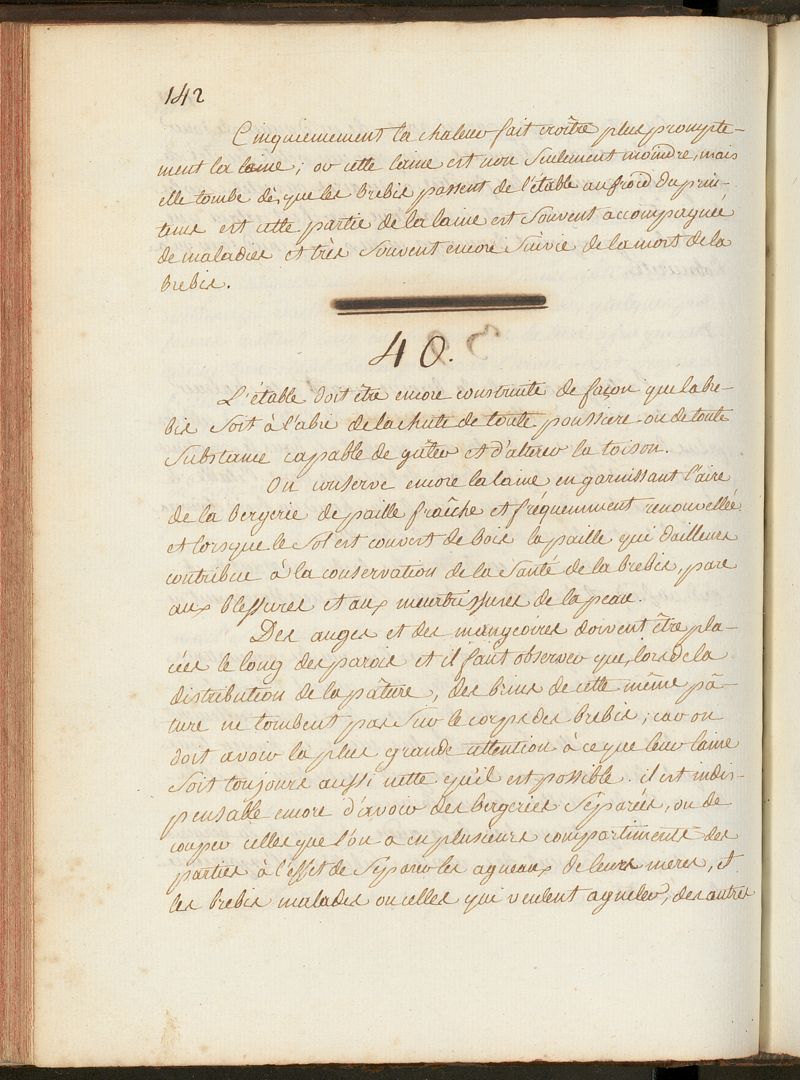 142
Cinquiemement la chaleur fait croître plus prompte-
ment la laine; or cette laine est non seulement moindre, mais
elle tombe dès que les brebis passent de l'étable au froid du prin-
tems est cette partie de la laine est souvent accompagnée
de maladies et très souvent encore suivie de la mort de la
brebis.
40.
L'étable doit être encore construite de façon que la bre-
bis soit à l'abri de la chute de toute poussiere ou de toute
substance capable de gâter et d'alterer la toison.
On conserve encore la laine en garnissant l'aire
de la bergerie de paille fraîche et fréquemment renouvellée
et lorsque le sol est couvert de bois la paille qui d'ailleurs
contribue à la conservation de la santé de la brebis, pare
aux blessures et aux meurtrissures de la peau.
Des auges et des mangeoires doivent être pla-
cées le long des parois et il faut observer que, lors de la
distribution de la pâture, des brins de cette même pâ-
ture ne tombent pas sur le corps des brebis; car on
doit avoir la plus grande attention à ce que leur laine
soit toujours aussi nette qu'il est possible. il est indis-
pensable encore d'avoir des bergeries séparées, ou de
couper celles que l'on a en plusieurs compartiments des
parties à l'effet de séparer les agneaux de leurs meres, et
les brebis malades ou celles qui veulent agneler, des autres